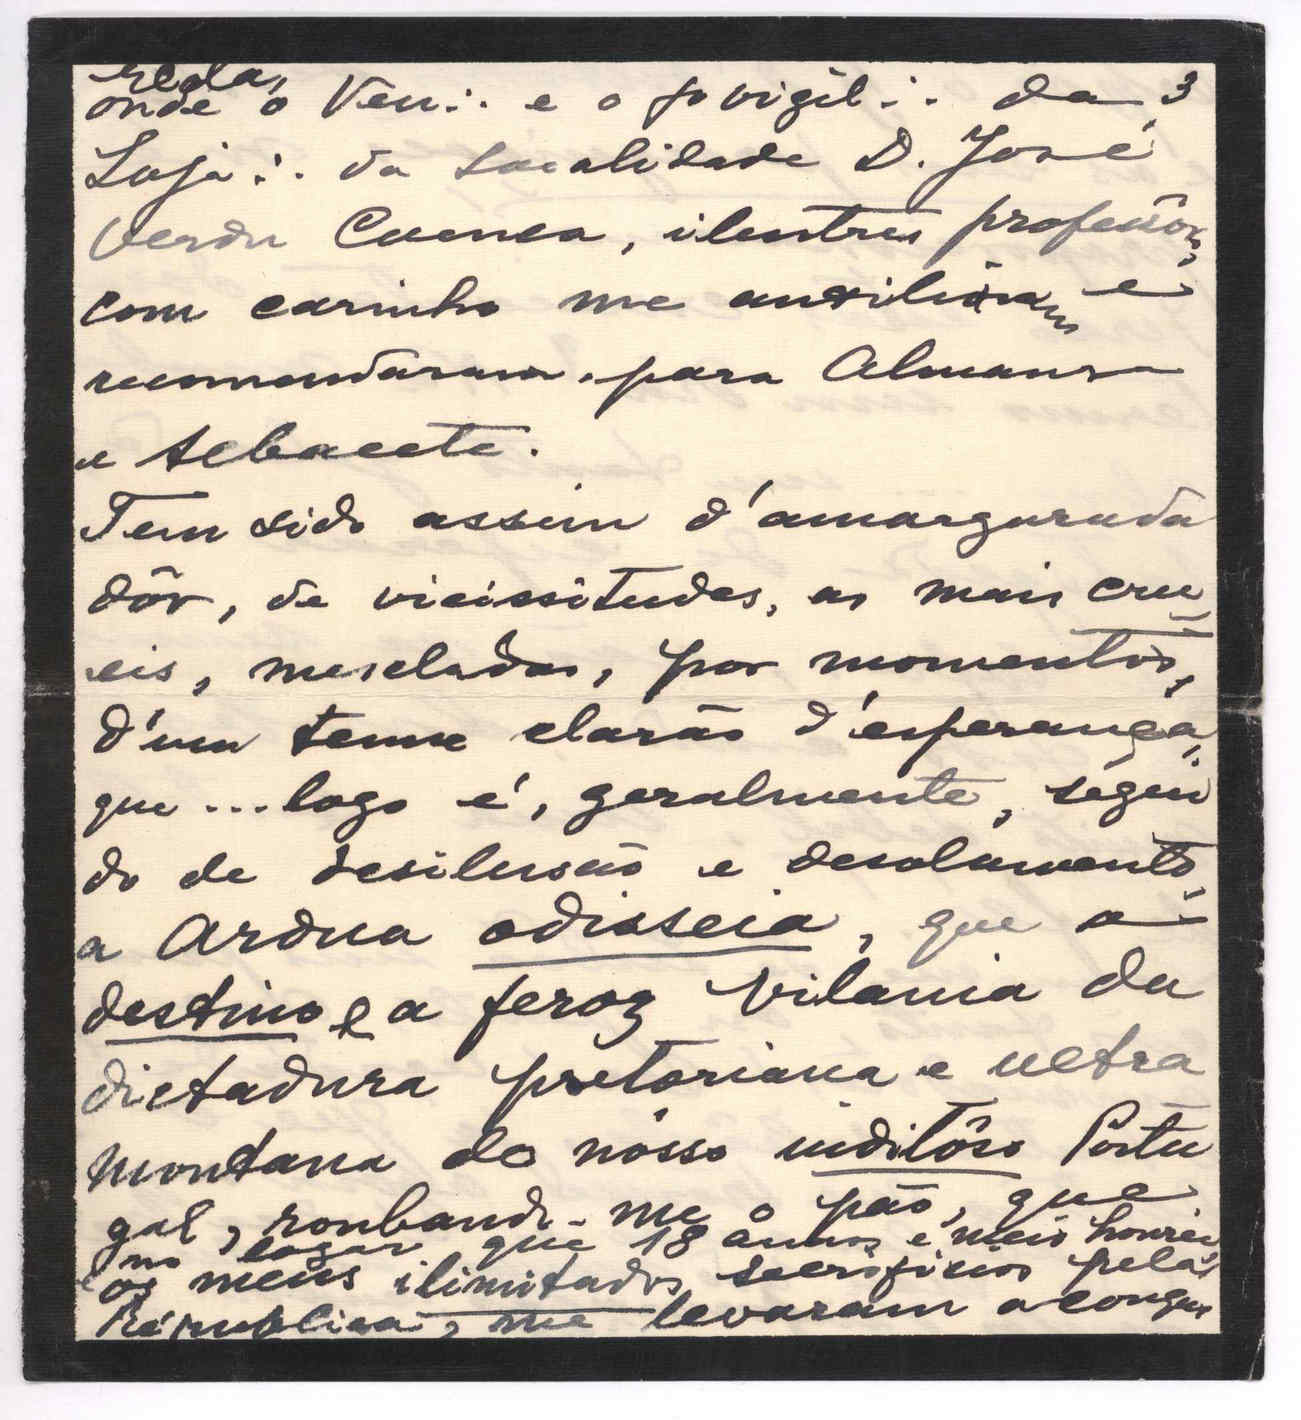 Elda,
onde o Ven∴ e o 1º vigil∴ da 3
Loja∴ da localidade D. José
Verdu Cuenca, ilustres professôres,
com carinho me auxiliaram e
recomendaram para Almansa
e Albacete.
Tem sido assim d'amargurada
dôr, de vicissitudes, as mais cru
eis, mescladas, por momentos,
d'um tenue clarão d'esperança,
que ... logo é, geralmente, segui
do de desilusão e desolamento,
a ardua odisseia, que o
destino e a feroz vilania da
dictadura pretoriana e ultra
montana do nósso inditôso Portu
gal, roubando-me o pão, que
no logar que 18 annos e meio honrei
e os meus ilimitados sacrificios pela
Républica, me levaram a conqui